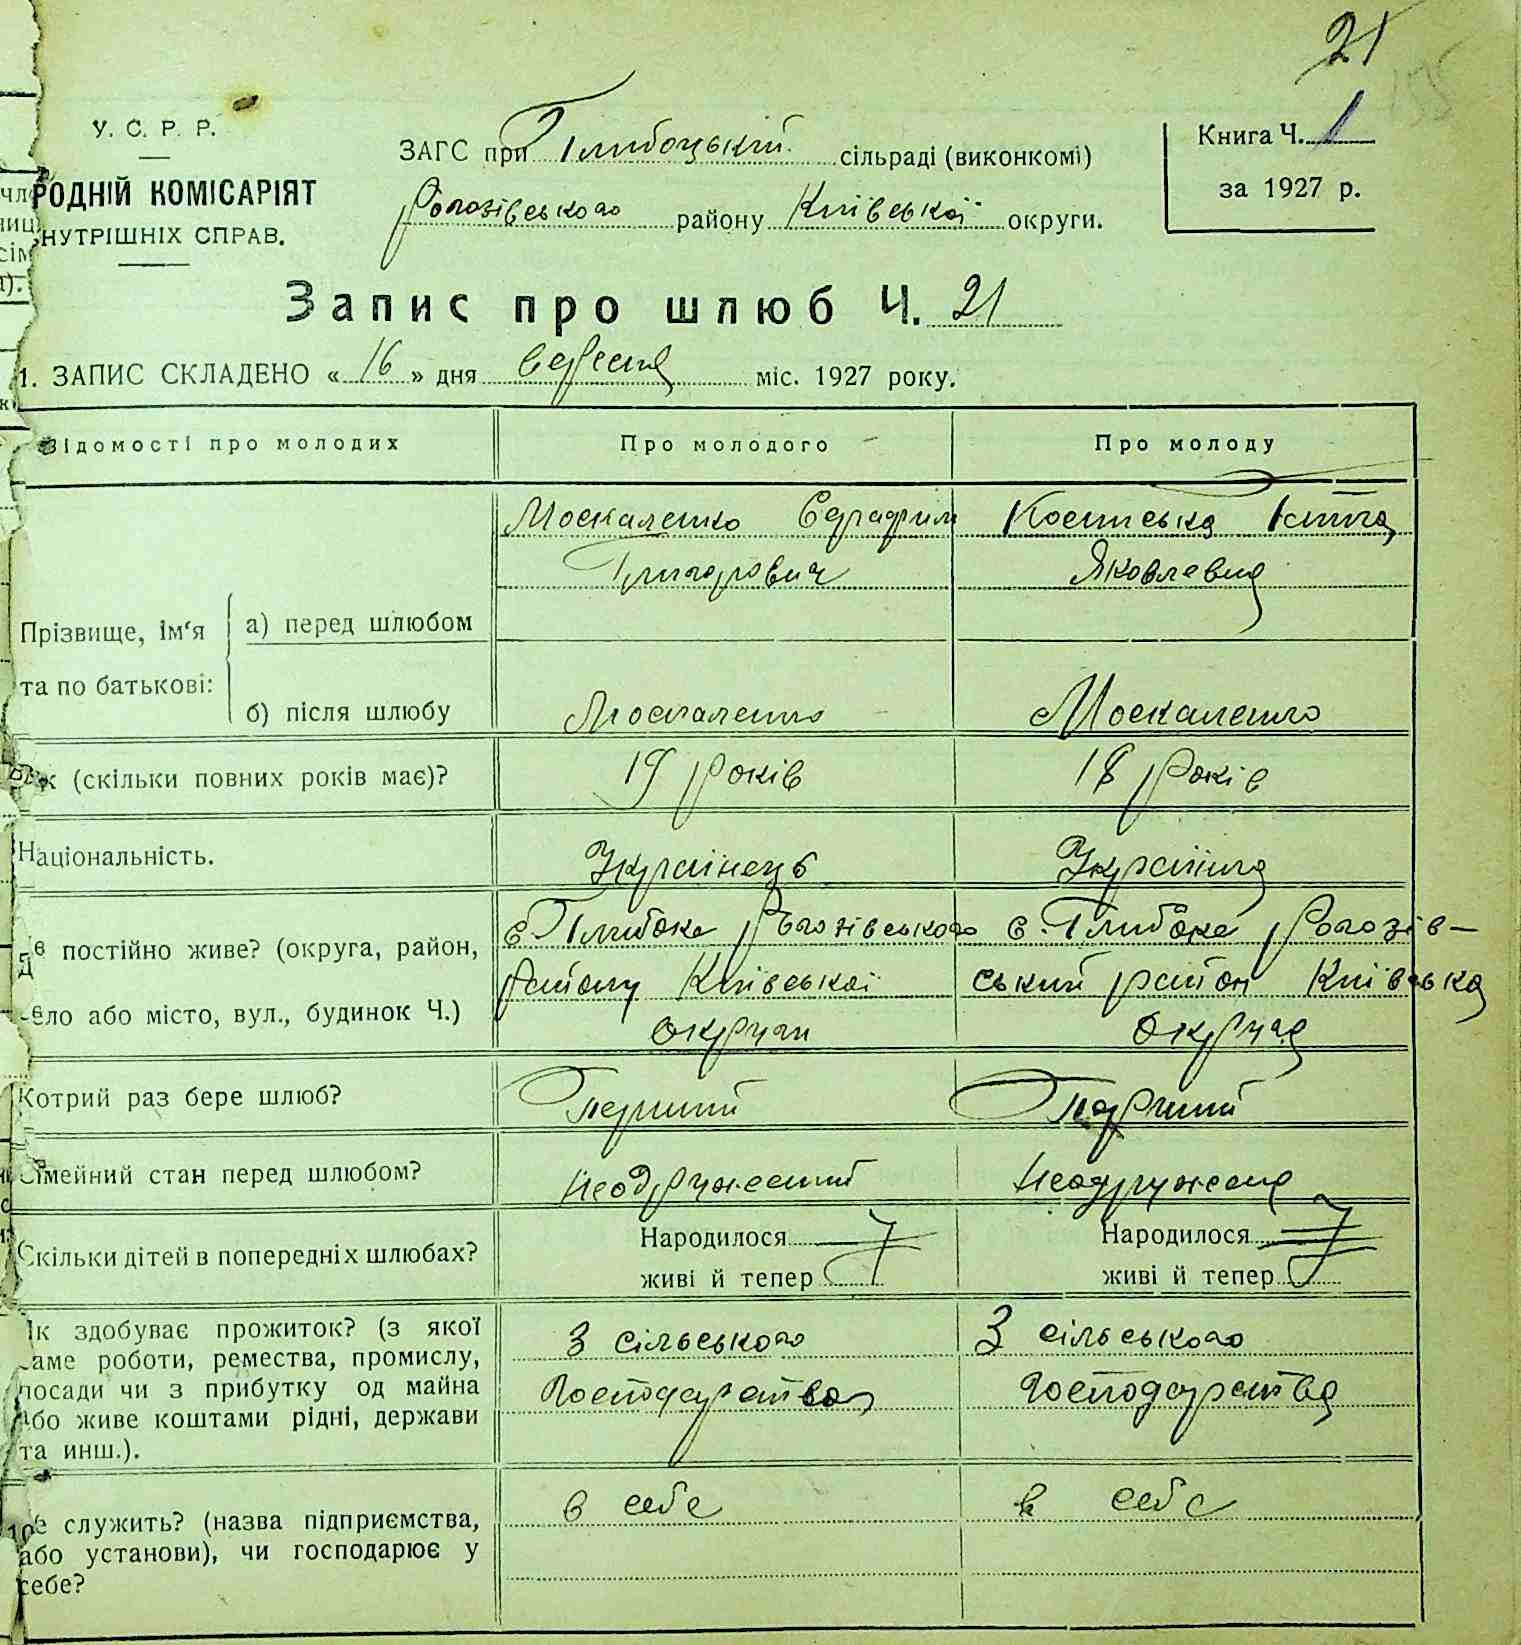 21
195
У. С. Р. Р.
РОДНІЙ КОМІСАРІЯТ
НУТРІШНІХ СПРАВ.
ЗАГС при Глибоцькій сільраді (виконкомі)
Рогозівського району Київської округи.
Книга Ч. 1
за 1927 р.
Запис про шлюб Ч. 21
1. ЗАПИС СКЛАДЕНО « 16 » дня вересня міс. 1927 року.
Відомості про молодих Про молодого Про молоду
Прізвище, ім'я та по батькові:
а) перед шлюбом
Москаленко Серафим
Григорович
Яковлевна
б) після шлюбу Москаленко Москаленко
Вік (скільки повних років має)? 19 років 18 років
Національність. Українець Українка
Де постійно живе? (округа, район,
село або місто, вул., будинок Ч.)
с. Глибоке Рогозівського
району Київської
округи
с. Глибоке Рогозів-
ський район Київська
округа
Котрий раз бере шлюб? Перший Перший
Сімейний стан перед шлюбом? Неодружений Неодружена
Скільки дітей в попередніх шлюбах? Народилося Народилося
живі й тепер живі й тепер
Як здобуває прожиток? (з якої
саме роботи, ремества, промислу,
посади чи з прибутку од майна
або живе коштами рідні, держави
та инш.).
З сільського
господарства
З сільського
господарства
Де служить? (назва підприємства,
або установи), чи господарює у
себе?
в себе
в себе